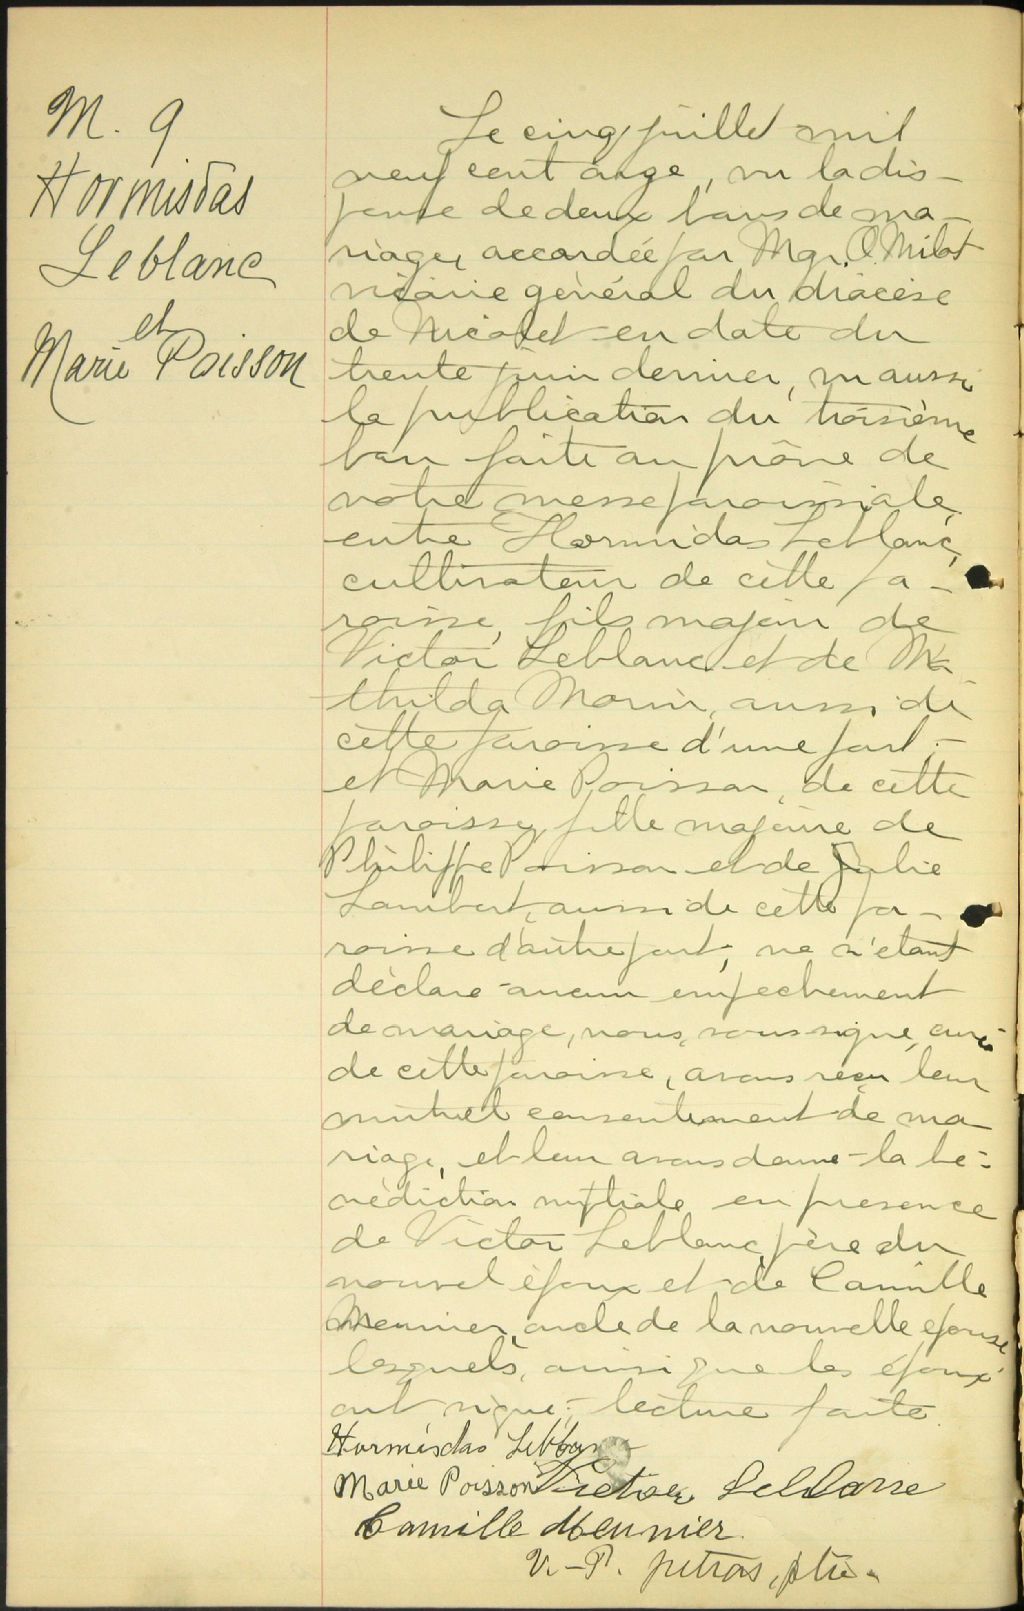 M. 9
Hormisdas
Leblanc
et
Marie Poisson
Le cinq juillet mil
neuf cent onze, vu la dis-
pense de deux bans de ma-
riage, accordée par Mgr. O. Milot
vicaire général du diocèse
de Nicolet en date du
trente juin dernier, vu aussi
la publication du troisième
ban faite au prône de
notre messe paroissiale,
entre Hormidas Leblanc,
cultivateur de cette pa-
roisse, fils majeur de
Victor Leblanc et de Ma-
thilda Morin, aussi de
cette paroisse d'une part;-
et Marie Poisson, de cette
paroisse, fille majeure de
Philippe Poisson et de Julie
Lambert, aussi de cette pa-
roisse d'autre part; ne s'étant
déclaré aucun empechement
de mariage, nous, soussigné, curé
de cette paroisse, avons reçu leur
mutuel consentement de ma-
riage, et leur avons donné la bé-
nédiction nuptiale en presence
de Victor Leblanc, père du
nouvel époux et de Camille
Meunier, oncle de la nouvelle epouse
lesquels, ainsi que les époux
ont signé; lecture faite.
Hormisdas Leblanc
Marie Poisson Victor Leblanc
Camille Meunier
V.-P. , ptre.